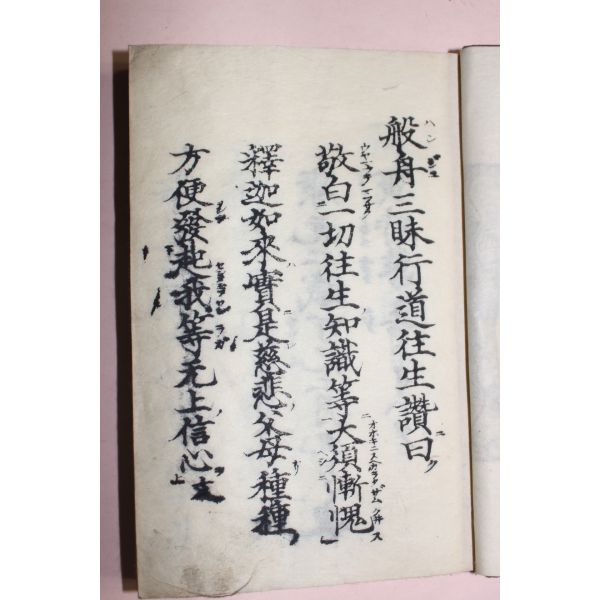 般舟三昧行道往生讚曰
敬白一切往生知識等大須慚愧
釋迦如來實是慈悲父母種種
方便發起我等无上信心